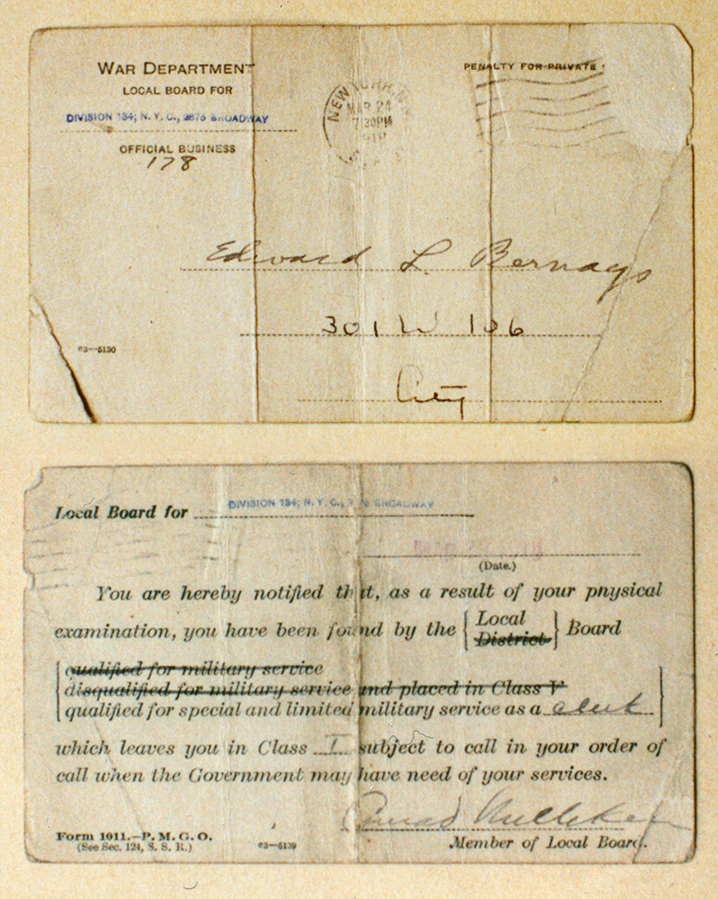 WAR DEPARTMENT
LOCAL BOARD FOR
DIVISION 134; N. Y. C., 2875 BROADWAY
OFFICIAL BUSINESS
178
PENALTY FOR PRIVATE
NEW YORK, N.Y.
MAR 24
7 30PM
1918
Edward L. Bernays
301 W 106
City
c3—5130
Local Board for DIVISION 134; N. Y. C., BROADWAY
(Date.)
You are hereby notified that, as a result of your physical
examination, you have been found by the { Local District } Board
qualified for military service
disqualified for military service and placed in Class V
qualified for special and limited military service as a clerk
which leaves you in Class I subject to call in your order of
call when the Government may have need of your services.
Conrad
Member of Local Board.
Form 1011.—P. M. G. O.
(See Sec. 124, S. S. R.)
c3—5139